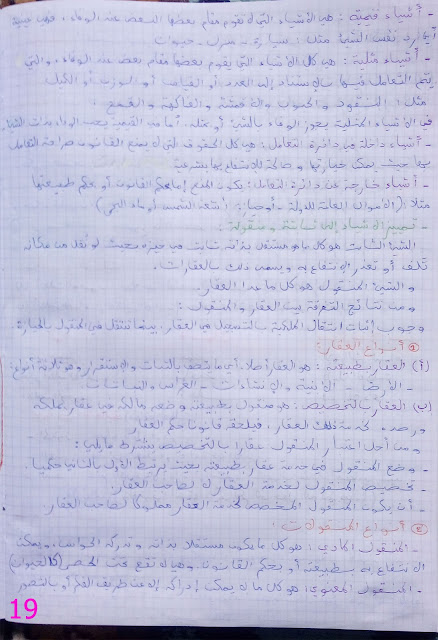 - أشياء قيمية : هي الأشياء التي لا يقوم مقام بعضها البعض عند الوفاء ، فهي
أي يرد نفس الشيء مثل : سيارة - منزل - حيوان
- أشياء مثلية : هي كل الأشياء التي يقوم بعضها مقام بعض عند الوفاء ، والتي
يتم التعامل فيها بالإستناد إلى العدد أو القياس أو الوزن أو الكيل
مثل : النقود والحبوب والأقمشة والفاكهة والقمح .
في الأشياء المثلية يجوز الوفاء بالشيء أو مثله . أما في القيمية يجب الوفاء بذات الشيء
- أشياء داخلة في دائرة التعامل : هي كل الحقوق التي لم يمنع القانون صراحة التعامل
بها حيث يمكن حيازتها وصالحة للإنتفاع بها بشرعية
- أشياء خارجة عن دائرة التعامل : يكون المنع إما بحكم القانون أو بحكم طبيعتها
مثلا : (الأموال العامة للدولة - أوحيازة أشعة الشمس أو ماء البحر)
- تمييز الأشياء إلى ثابتة ومنقولة :
الشيء الثابت هو كل ما هو مستقل بذاته ثابت في حيزه بحيث لو نقل من مكانه
تلف أو تعذر الإنتفاع به ويسمى ذلك بالعقارات .
- والشيء المنقول هو كل ما عدا العقار .
- ومن نتائج التفرقة بين العقار والمنقول :
وجوب إثبات انتقال الملكية بالتسجيل في العقار ، بينما تنتقل في المنقول بالحيازة .
① أنواع العقار :
(أ) العقار بطبيعته : هو العقار أصلا ، أي ما يتصف بالثبات والإستقرار وهو ثلاثة أنواع :
- الأرض - الأبنية والإنشاءات - الغراس والنباتات .
(ب) العقار بالتخصيص : هو منقول بطبيعته وضعه مالكه في عقار يملكه
ورصده لخدمة ذلك العقار ، فيلحقه قانونا حكم العقار
- ومن أجل اعتبار المنقول عقارا بالتخصيص يشترط ما يلي :
- وضع المنقول في خدمة عقار بطبيعته بحيث يرتبط الأول بالثاني حكميا .
- تخصيص المنقول لخدمة العقار لا لصاحب العقار .
- أن يكون المنقول المخصص لخدمة العقار مملوكا لصاحب العقار .
② أنواع المنقولات :
- المنقول المادي : هو كل ما يكون مستقلا بذاته وتدركه الحواس ، ويمكن
الإنتفاع به بطبيعته أو بحكم القانون . وهي لا تقع تحت الحصر (كالحيوان)
- المنقول المعنوي : هو كل ما لا يمكن إدراكه إلا عن طريق الفكر أو بالتصور
19